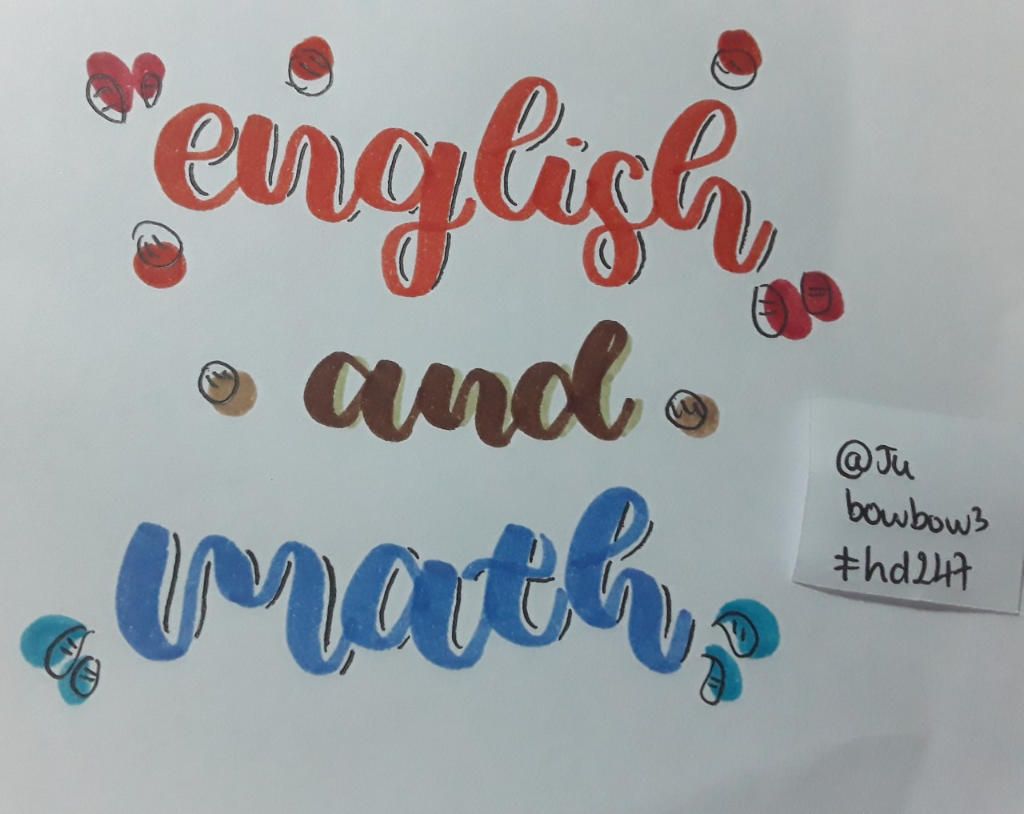 english
and
math
@Ju
bowbow3
#hd247